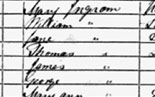 Mary Ingram
William "
Jane "
Thomas "
James "
George "
Mary ann "